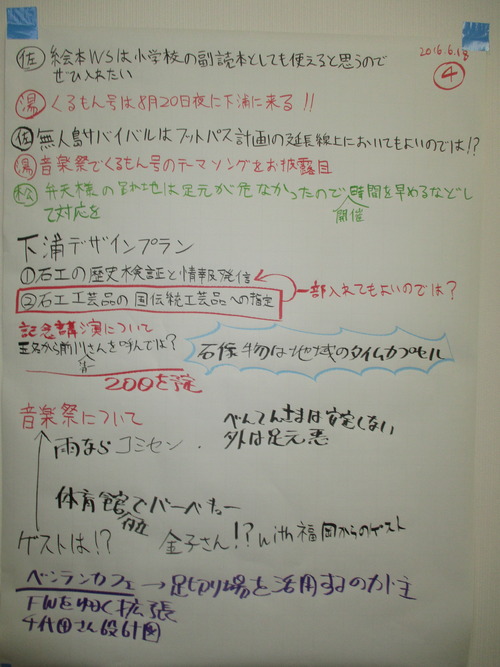 2016.6.18
④
佐 絵本WSは小学校の副読本としても使えると思うので
ぜひ入れたい
湯 くるもん号は8月20日夜に下浦に来る!!
佐 無人島サバイバルはフットパス計画の延長線上においてもよいのでは!?
湯 音楽祭でくるもん号のテーマソングをお披露目
松 弁天様の 地は足元が危なかったので、時間を早めるなどし
開催
て対応を
下浦デザインプラン
①石工の歴史検証と情報発信
②石工工芸品の国伝統工芸品への指定
一部入れてもよいのでは?
記念講演について
玉名から前川さんを呼んでは?
石像物は地域のタイムカプセル
200を予定
音楽祭について
べんてんさまは安定しない
外は足元悪
雨ならコミセン.
体育館でバーベキュー
ゲストは!?
金子さん!? with福岡からのゲスト
ベンランカフェ→足切り場を活用するのが主
FWをゆかく拡張
千代田さん設計図